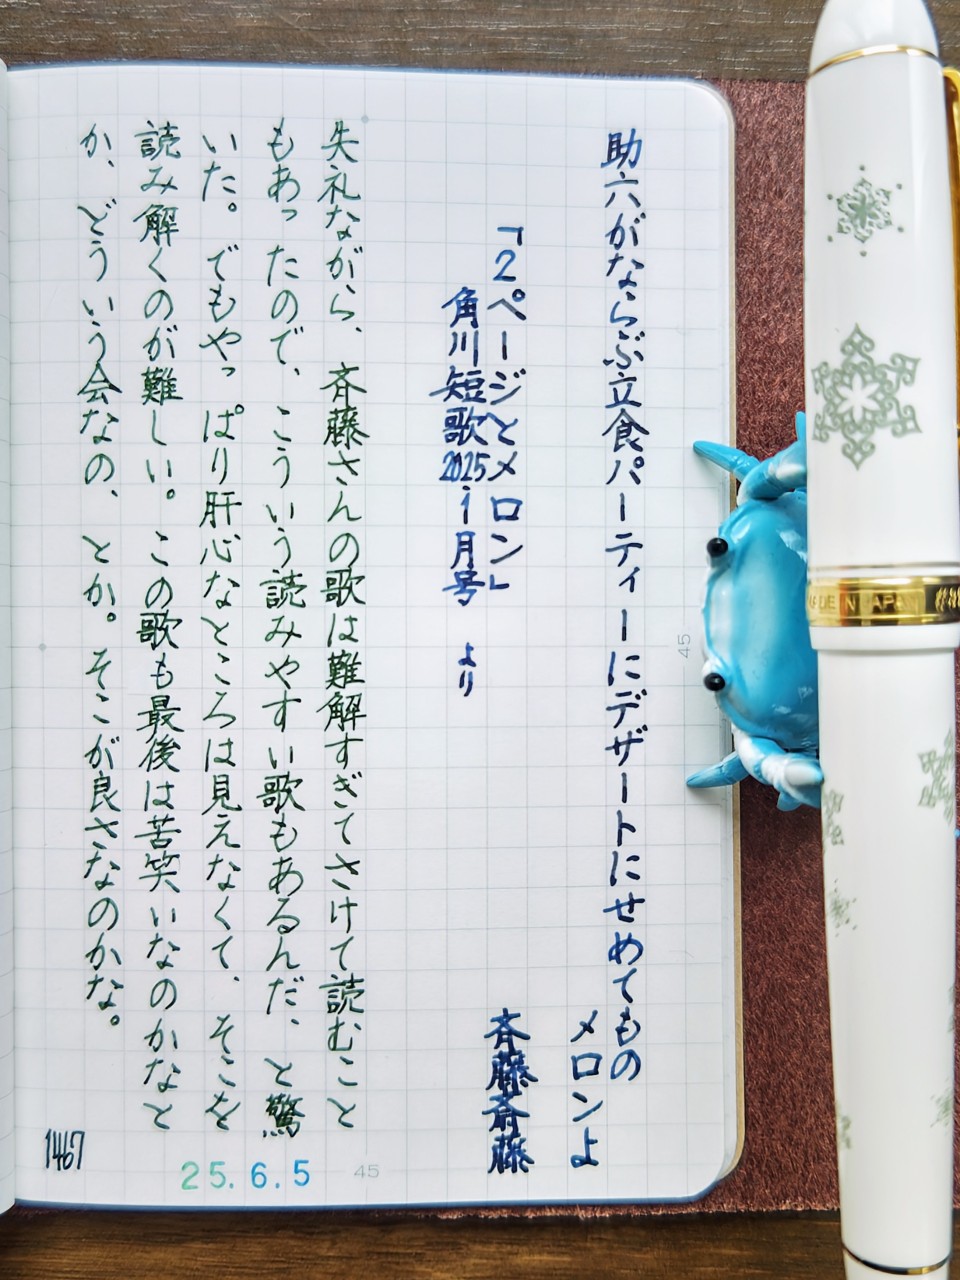 助六がならぶ立食パーティーにデザートにせめてもの
メロンよ
「2ページとメロン」 斉藤斎藤
角川短歌2025年1月号 より
失礼ながら、斉藤さんの歌は難解すぎてさけて読むこと
もあったので、こういう読みやすい歌もあるんだ、と驚
いた。でもやっぱり肝心なところは見えなくて、そこを
読み解くのが難しい。この歌も最後は苦笑いなのかなと
か、どういう会なの、とか。そこが良さなのかな。
1467
25.6.5
45
45
MADE IN JAPAN